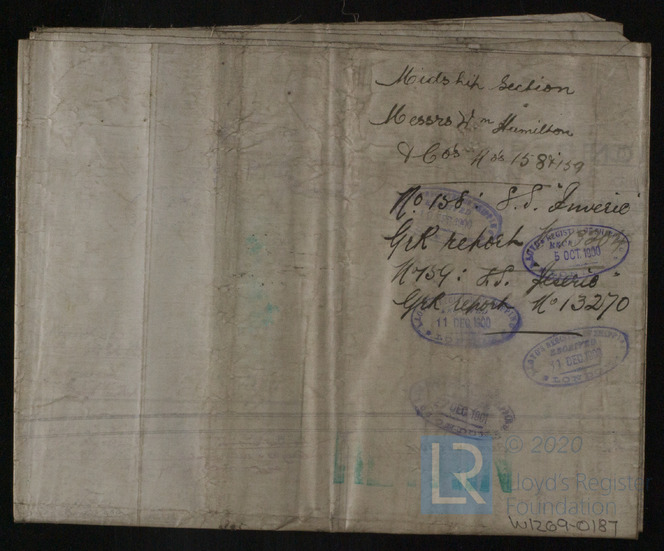 Midship Section
Messrs Wm Hamilton
& Co's Nos 158 & 159
No. 158: S.S. "Inveric"
Gck report
No 159: S.S. "Jeseric"
Gck report No 13270
LLOYD'S REGISTER
5 OCT. 1900
11 DEC 1900
11 DEC
DEC 1901
LR
© 2020
Lloyd's Register
Foundation
W1269-0187